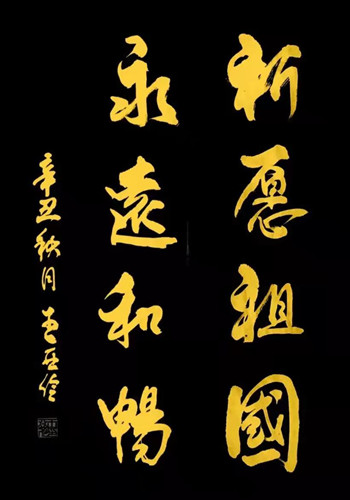 祈愿祖國
永遠和暢
辛丑秋月